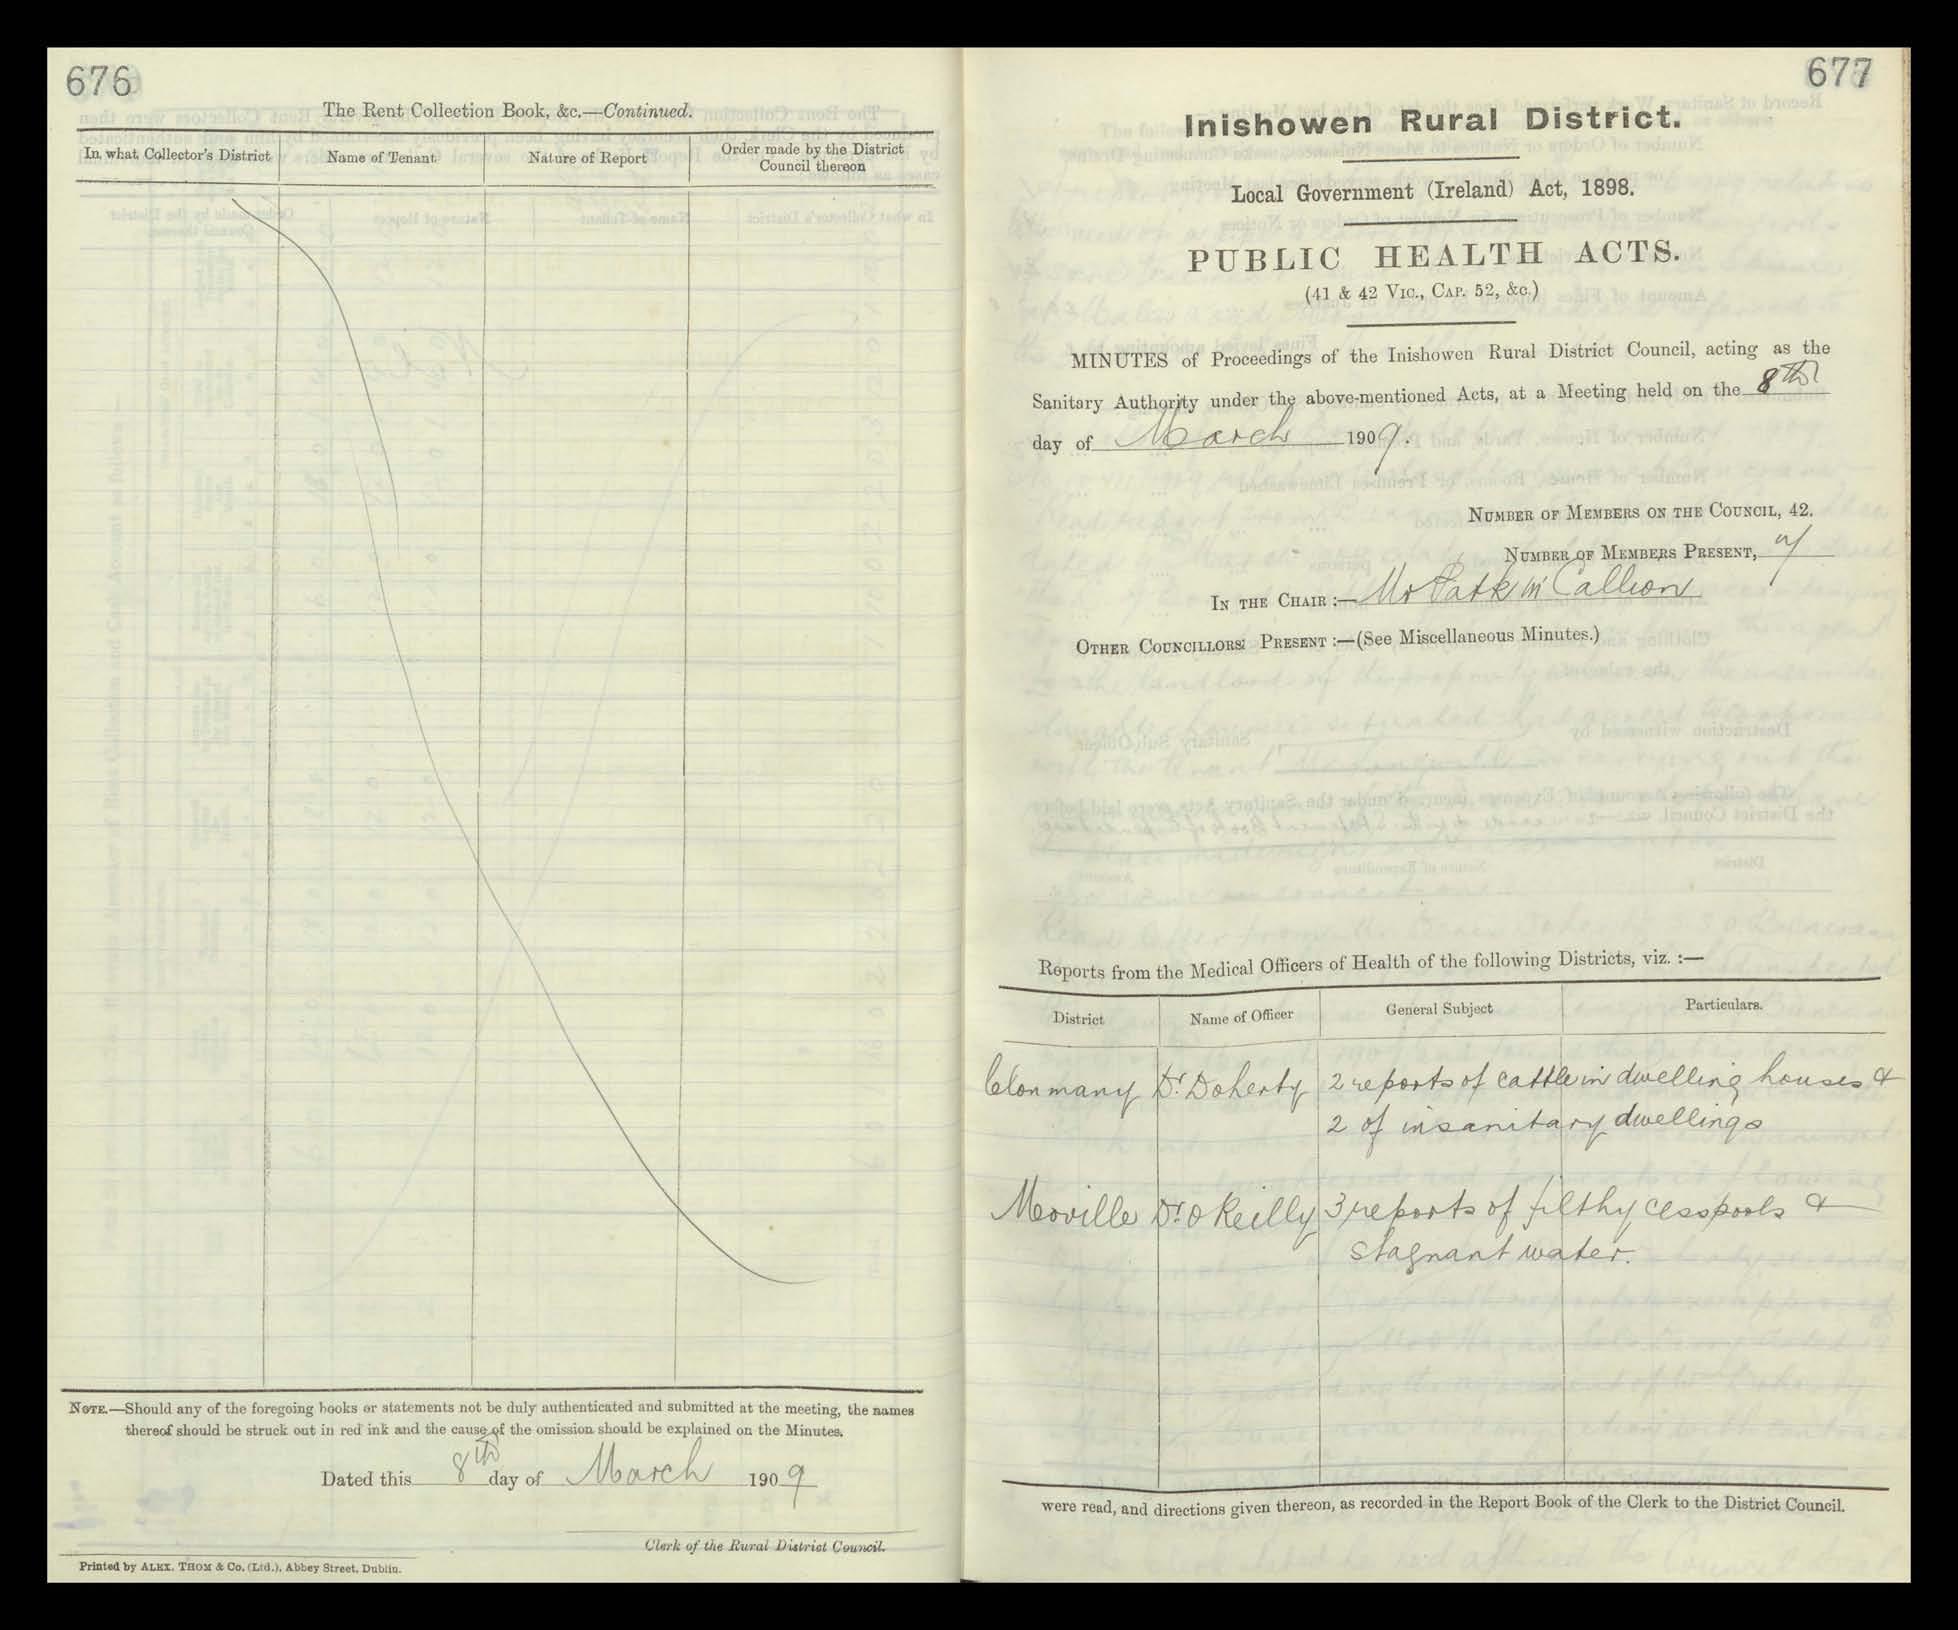 676
The Rent Collection Book, &c.—Continued.
In what Collector's District
Name of Tenant
Nature of Report
Order made by the District
Council thereon
NOTE.—Should any of the foregoing books or statements not be duly authenticated and submitted at the meeting, the names
thereof should be struck out in red ink and the cause of the omission should be explained on the Minutes.
Dated this 8th day of March 1909
Clerk of the Rural District Council.
Printed by ALEX. THOM & Co. (Ltd.), Abbey Street, Dublin.
677
Inishowen Rural District.
Local Government (Ireland) Act, 1898.
PUBLIC HEALTH ACTS.
(41 & 42 VIC., CAP. 52, &c.)
MINUTES of Proceedings of the Inishowen Rural District Council, acting as the
Sanitary Authority under the above-mentioned Acts, at a Meeting held on the 8th
day of March 1909.
NUMBER OF MEMBERS ON THE COUNCIL, 42.
NUMBER OF MEMBERS PRESENT,
IN THE CHAIR:— Mr Patk McCallion
OTHER COUNCILLORS PRESENT:—(See Miscellaneous Minutes.)
Reports from the Medical Officers of Health of the following Districts, viz.:—
District
Name of Officer
General Subject
Particulars.
Clonmany Dr. Doherty 2 reports of cattle in dwelling houses &
2 of insanitary dwellings
Moville Dr. O Reilly 3 reports of filthy cesspools &
stagnant water.
were read, and directions given thereon, as recorded in the Report Book of the Clerk to the District Council.